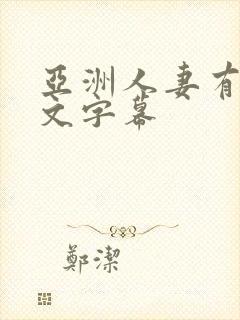 亞洲人妻有
文字幕
鄭潔